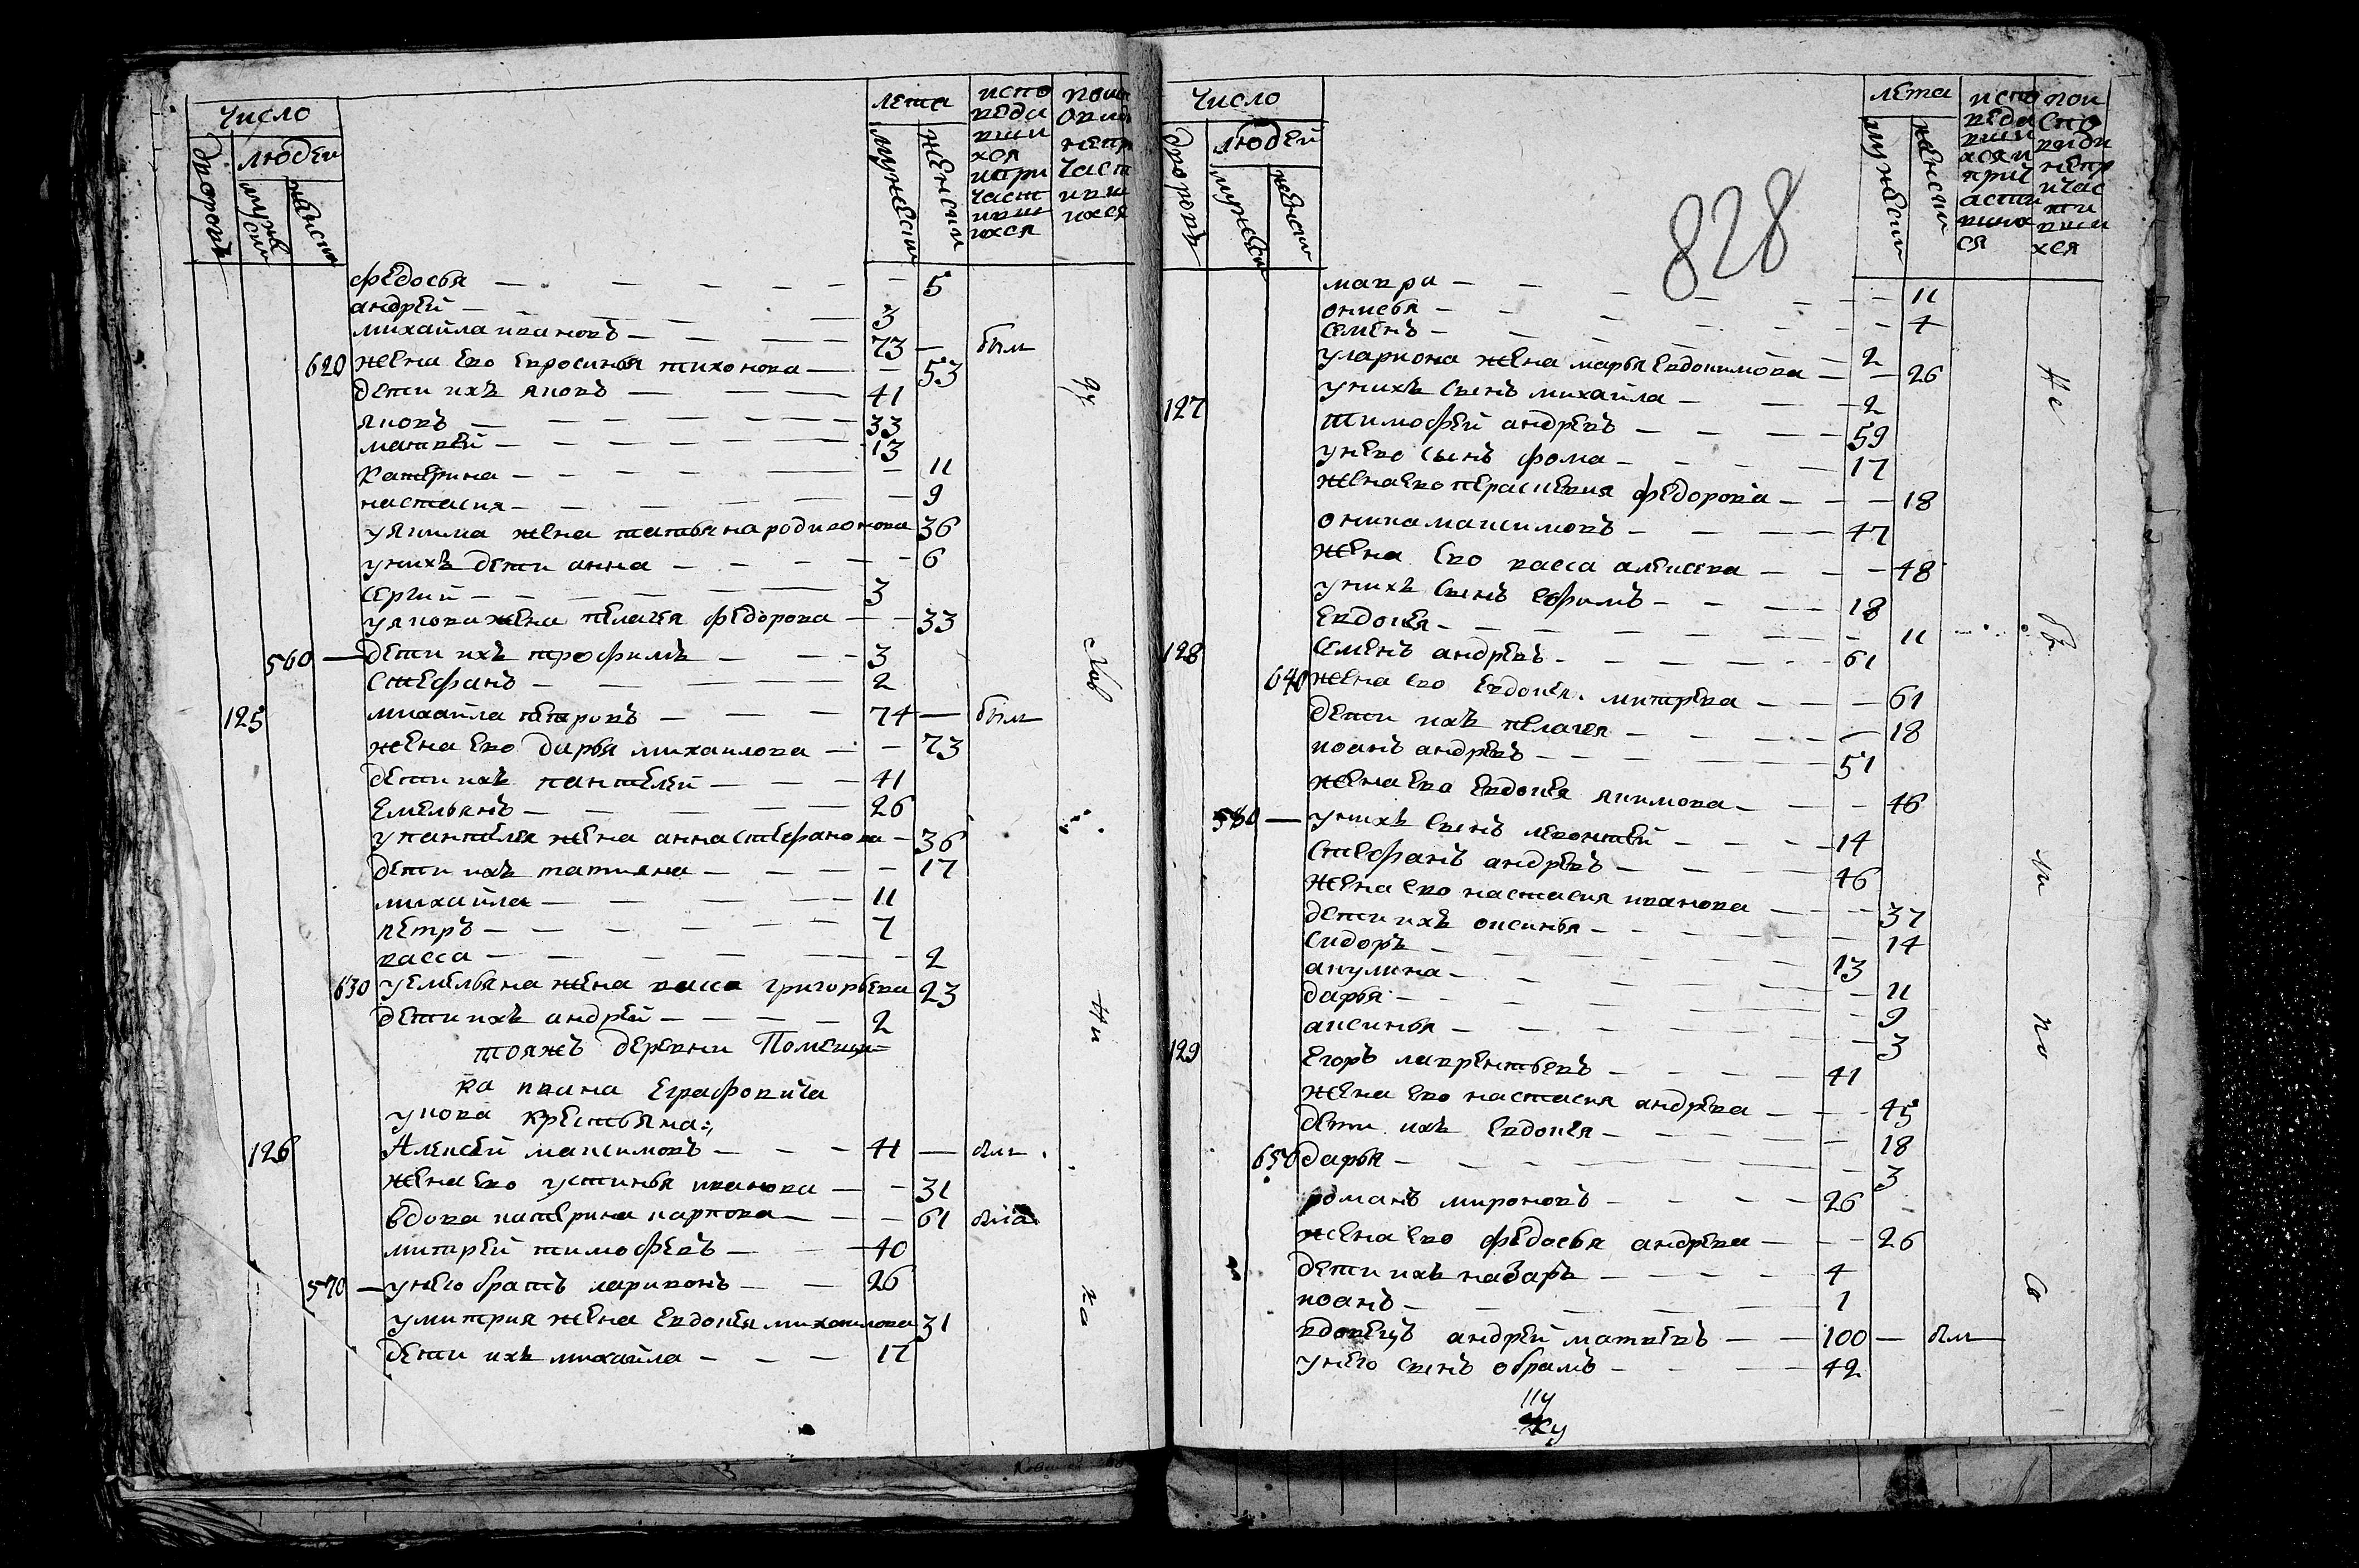 Число
дворовъ
людей
мужеска
женска
лета
мужеска
женски
испо
веди
вши
хся
ипри
част
ивш
ихся
непр
част
ивш
ихся
федосья — — — — — — 5
андрей — — — — 3
михайла ивановъ — — — 73 — был
620 жена ево евросинья тихонова — — 53
дети ихъ яковъ — — — 41
яковъ — — — — — 33
матвей — — — — — 13
катерина — — — — — — 11
настасия — — — — — — 9
уякима жена татьяна родивонова 36
унихъ дети анна — — — — — 6
сергий — — — — — 3
уякова жена пелагея федорова — — 33
560 — дети ихъ трофимъ — — — 3
стефанъ — — — — 2
125 михайла петровъ — — — — 74 — был
жена ево дарья михаилова — — 73
дети ихъ пантелей — — — 41
емельянъ — — — — 26
упантелея жена анна стефанова — 36
дети ихъ татияна — — — — 17
михайла — — — — — 11
петръ — — — — — — 7
васса — — — — — — 2
630 уемельяна жена васса григорьева 23
дети ихъ андрей — — — — 2
тояжъ деревни Помещи=
ка ивана Еграфовича
крестьяна:,
126 Алексей максимовъ — — — 41 — был
жена ево устинья иванова — — 31
вдова катерина карпова — — — 61 была
митрей тимофевъ — — — 40
570 — унего братъ ларивонъ — — 26
умитрия жена евдокея михаилова 31
дети ихъ михайла — — — 12
Число
дворовъ
людей
мужеска
женски
828
лета
мужески
женски
испо
веди
вши
хсяи
прич
асти
вших
ся
неи
спо
веди
непр
ичас
ти
вши
хся
мавра — — — — — — 11
онисья — — — — — — 4
семенъ — — — — — 2
улариона жена марья евдокимова — — 26
унихъ сынъ михайла — — — 2
127 тимофей андревъ — — — — 59
унево сынъ фома — — — — 17
жена ево перасковия федорова — — — 18
оника максимовъ — — — — 47
жена ево васса алексева — — — 48
унихъ сынъ ефимъ — — — — 18
евдокея — — — — — — — 11
128 семенъ андревъ — — — — — 61
640 жена ево евдокея митрева — — — 61
дети ихъ пелагея — — — — — 18
иоанъ андревъ — — — — — 51
жена ево евдокея якимова — — — 46
580 — унихъ сынъ левонтей — — — — 14
стефанъ андревъ — — — — 46
жена ево настасия иванова — — — 37
дети ихъ оксинья — — — — — — 14
сидоръ — — — — — — 13
акулина — — — — — — — 11
дарья — — — — — — — 9
аксинья — — — — — — — 3
129 егоръ лаврентьевъ — — — — 41
жена ево настасия андрева — — — 45
дети ихъ евдокея — — — — — 18
650 дарья — — — — — — — 3
романъ мироновъ — — — — 26
жена ево федосья андрева — — — 26
дети ихъ назаръ — — — — 4
иоанъ — — — — — 1
вдовецъ андрей матвевъ — — 100 — был
унего сынъ обрамъ — — — 42